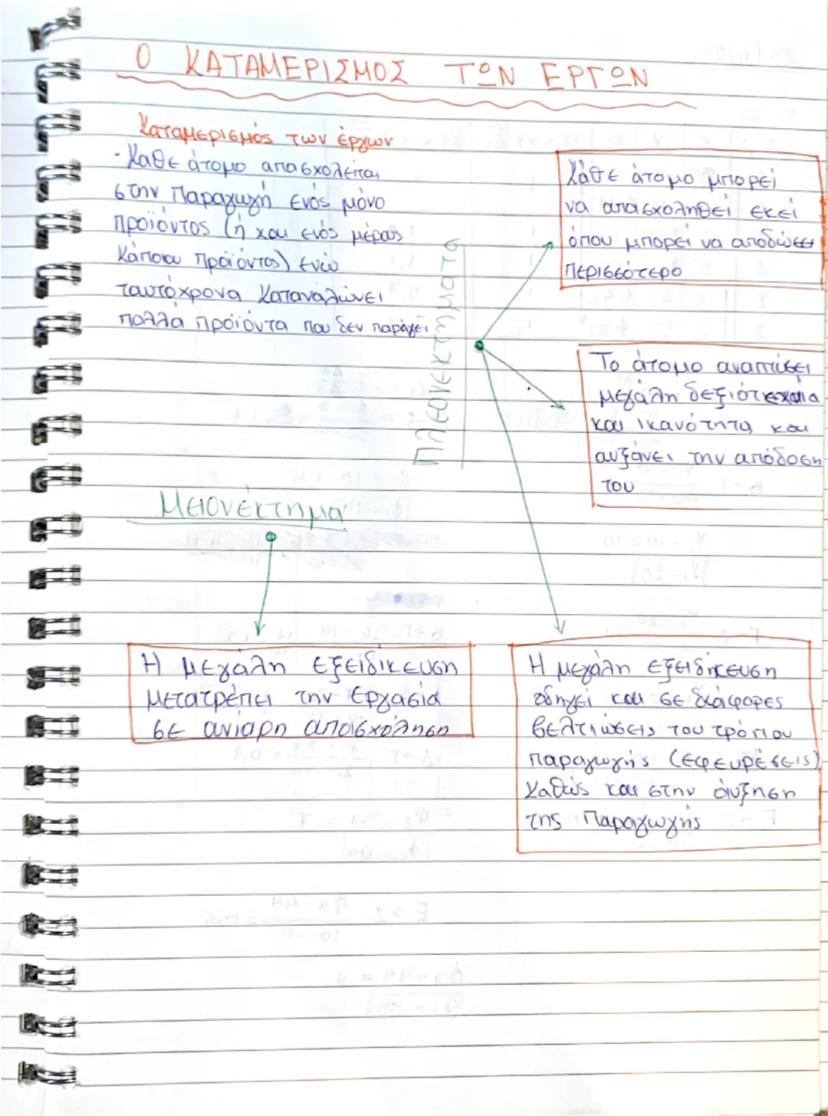 Ο ΚΑΤΑΜΕΡΙΣΜΟΣ ΤΩΝ ΕΡΓΩΝ
Καταμερισμός των έργων
-Κάθε άτομο απασχολείται
στην παραγωγή ενός μόνο
προϊόντος (ή και ενός μέρους
κάποιου προϊόντος) ενώ
ταυτόχρονα καταναλώνει
πολλά προϊόντα που δεν παράγει
Πλεονεκτήματα
Κάθε άτομο μπορεί
να απασχοληθεί εκεί
όπου μπορεί να αποδώσει
περισσότερο
Το άτομο αναπτύσει
μεγάλη
και ικανότητα και
αυξάνει την απόδοση
του
Μειονέκτημα
Η μεγάλη εξείδικευση
μετατρέπει την εργασία
σε ανίαρη απασχόληση
Η μεγάλη εξειδήκευση
οδηγεί και σε διάφορες
βελτιώσεις του τρόπου
παραγωγής (εφευρέσεις)
καθώς και στην αύξηση
της Παραγωγής